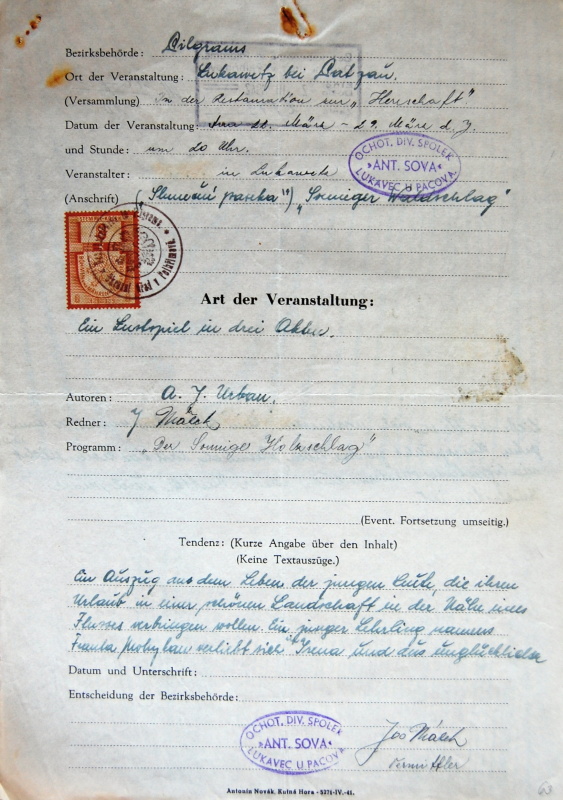 Bezirksbehörde: Pilgrams
Ort der Veranstaltung: Lukawetz bei Patzau.
(Versammlung) In der Restauration zur „Herrschaft"
Datum der Veranstaltung: 22. März - 29. März d. J.
und Stunde: um 20 Uhr.
Veranstalter: in Lukawetz
(Anschrift) (Sluneční paseka") „Sonniger Waldschlag"
OCHOT. DIV. SPOLEK
»ANT. SOVA«
LUKAVEC U PACOVA.
Art der Veranstaltung:
Ein Lustspiel in drei Akten.
Autoren: A. J. Urban.
Redner: J Málek
Programm: „Der Sonnige Holzschlag"
(Event. Fortsetzung umseitig.)
Tendenz: (Kurze Angabe über den Inhalt)
(Keine Textauszüge.)
Ein Auszug aus dem Leben der jungen Leute, die ihren
Urlaub in einer schönen Landschaft in der Nähe eines
Flusses verbringen wollen. Ein junger Lehrling namens
Franta verliebt sich in Irena und aus unglücklicher
Datum und Unterschrift:
Entscheidung der Bezirksbehörde:
OCHOT. DIV. SPOLEK
»ANT. SOVA«
LUKAVEC U PACOVA
Jos Málek
Antonín Novák, Kutná Hora - 5271-IV.-41.